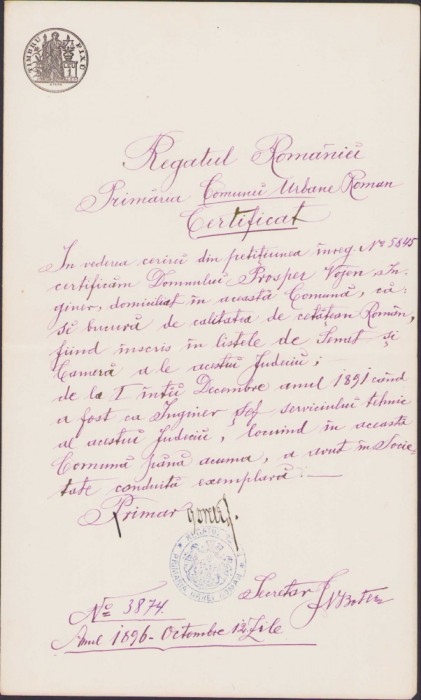 TIMBRU FIX
Regatul României
Primăria Comunei Urbane Roman
Certificat
In vederea cererei din petițiunea înreg № 5645
certificăm Domnului Prosper Vojen In-
giner, domiciliat în această Comună, că
se bucură de calitatea de cetățean Român,
fiind înscris în listele de Senat și
Cameră a le acestui Județiu;
de la I întiu Decembre anul 1891 când
a fost ca Inginer șef serviciului tehnic
al acestui Județiu, locuind în această
Comună până acuma, a avut în Socie-
tate conduită exemplară.
Primar
PRIMARIA URBEI ROMAN
Secretar
№ 3874.
Anul 1896 - Octombre 12 Zile